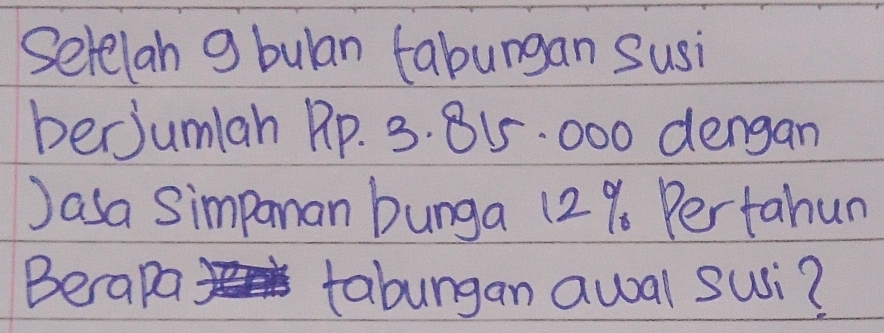 Setelah 9 bulan tabungan Susi
berjumlah Rp. 3.815.000 dengan
Jasa Simpanan bunga 12% Pertahun
Berapa tabungan awal susi?